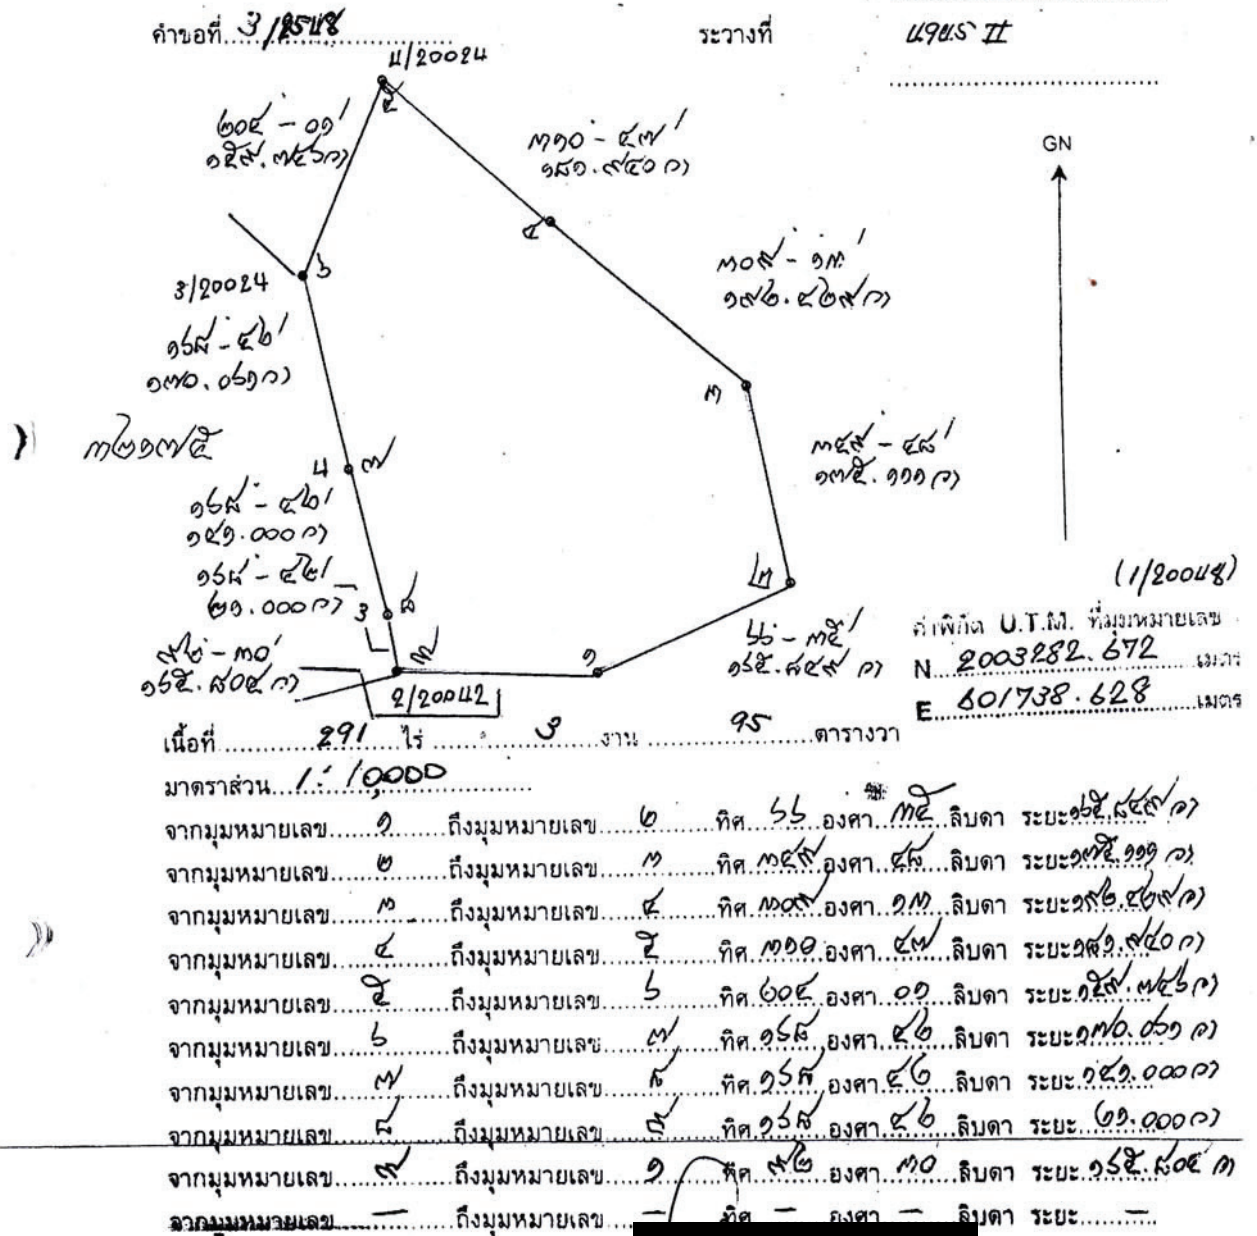 คำขอที่ 3/2548 ระวางที่ แขบร II
4/20024
๕
๒๐๔ - ๐๑'
๑๕๙.๗๔๖ว
๓๑๐ - ๔๗'
๑๘๑.๙๔๐ว
GN
๔
๓๐๙ - ๑๓'
๑๙๒.๔๒๙ว
๖
3/20024
๑๖๘ - ๔๒'
๑๗๐.๐๖๑ว
๓
๓๒๑๗๕
๓๔๙ - ๔๘'
๑๗๕.๑๑๑ว
4 ๗
๑๖๘ - ๔๒'
๑๔๑.๐๐๐ว
๑๖๘ - ๔๒'
๒๑.๐๐๐ว
3 ๘
๒
(1/20048)
๖๖ - ๓๕'
๑๖๕.๘๔๙ว
ค่าพิกัด U.T.M. ที่มุมหมายเลข
N 2003282.672 เมตร
E 601738.628 เมตร
๙๒ - ๓๐'
๑๖๕.๘๐๔ว
๙ ๑
2/20042
เนื้อที่ 291 ไร่ 3 งาน 95 ตารางวา
มาตราส่วน 1:10,000
จากมุมหมายเลข ๑ ถึงมุมหมายเลข ๒ ทิศ ๖๖ องศา ๓๕ ลิบดา ระยะ ๑๖๕.๘๔๙ว
จากมุมหมายเลข ๒ ถึงมุมหมายเลข ๓ ทิศ ๓๔๙ องศา ๔๘ ลิบดา ระยะ ๑๗๕.๑๑๑ว
จากมุมหมายเลข ๓ ถึงมุมหมายเลข ๔ ทิศ ๓๐๙ องศา ๑๓ ลิบดา ระยะ ๑๙๒.๔๒๙ว
จากมุมหมายเลข ๔ ถึงมุมหมายเลข ๕ ทิศ ๓๑๐ องศา ๔๗ ลิบดา ระยะ ๑๘๑.๙๔๐ว
จากมุมหมายเลข ๕ ถึงมุมหมายเลข ๖ ทิศ ๒๐๔ องศา ๐๑ ลิบดา ระยะ ๑๕๙.๗๔๖ว
จากมุมหมายเลข ๖ ถึงมุมหมายเลข ๗ ทิศ ๑๖๘ องศา ๔๒ ลิบดา ระยะ ๑๗๐.๐๖๑ว
จากมุมหมายเลข ๗ ถึงมุมหมายเลข ๘ ทิศ ๑๖๘ องศา ๔๒ ลิบดา ระยะ ๑๔๑.๐๐๐ว
จากมุมหมายเลข ๘ ถึงมุมหมายเลข ๙ ทิศ ๑๖๘ องศา ๔๒ ลิบดา ระยะ ๒๑.๐๐๐ว
จากมุมหมายเลข ๙ ถึงมุมหมายเลข ๑ ทิศ ๙๒ องศา ๓๐ ลิบดา ระยะ ๑๖๕.๘๐๔ว
จากมุมหมายเลข — ถึงมุมหมายเลข — ทิศ — องศา — ลิบดา ระยะ —